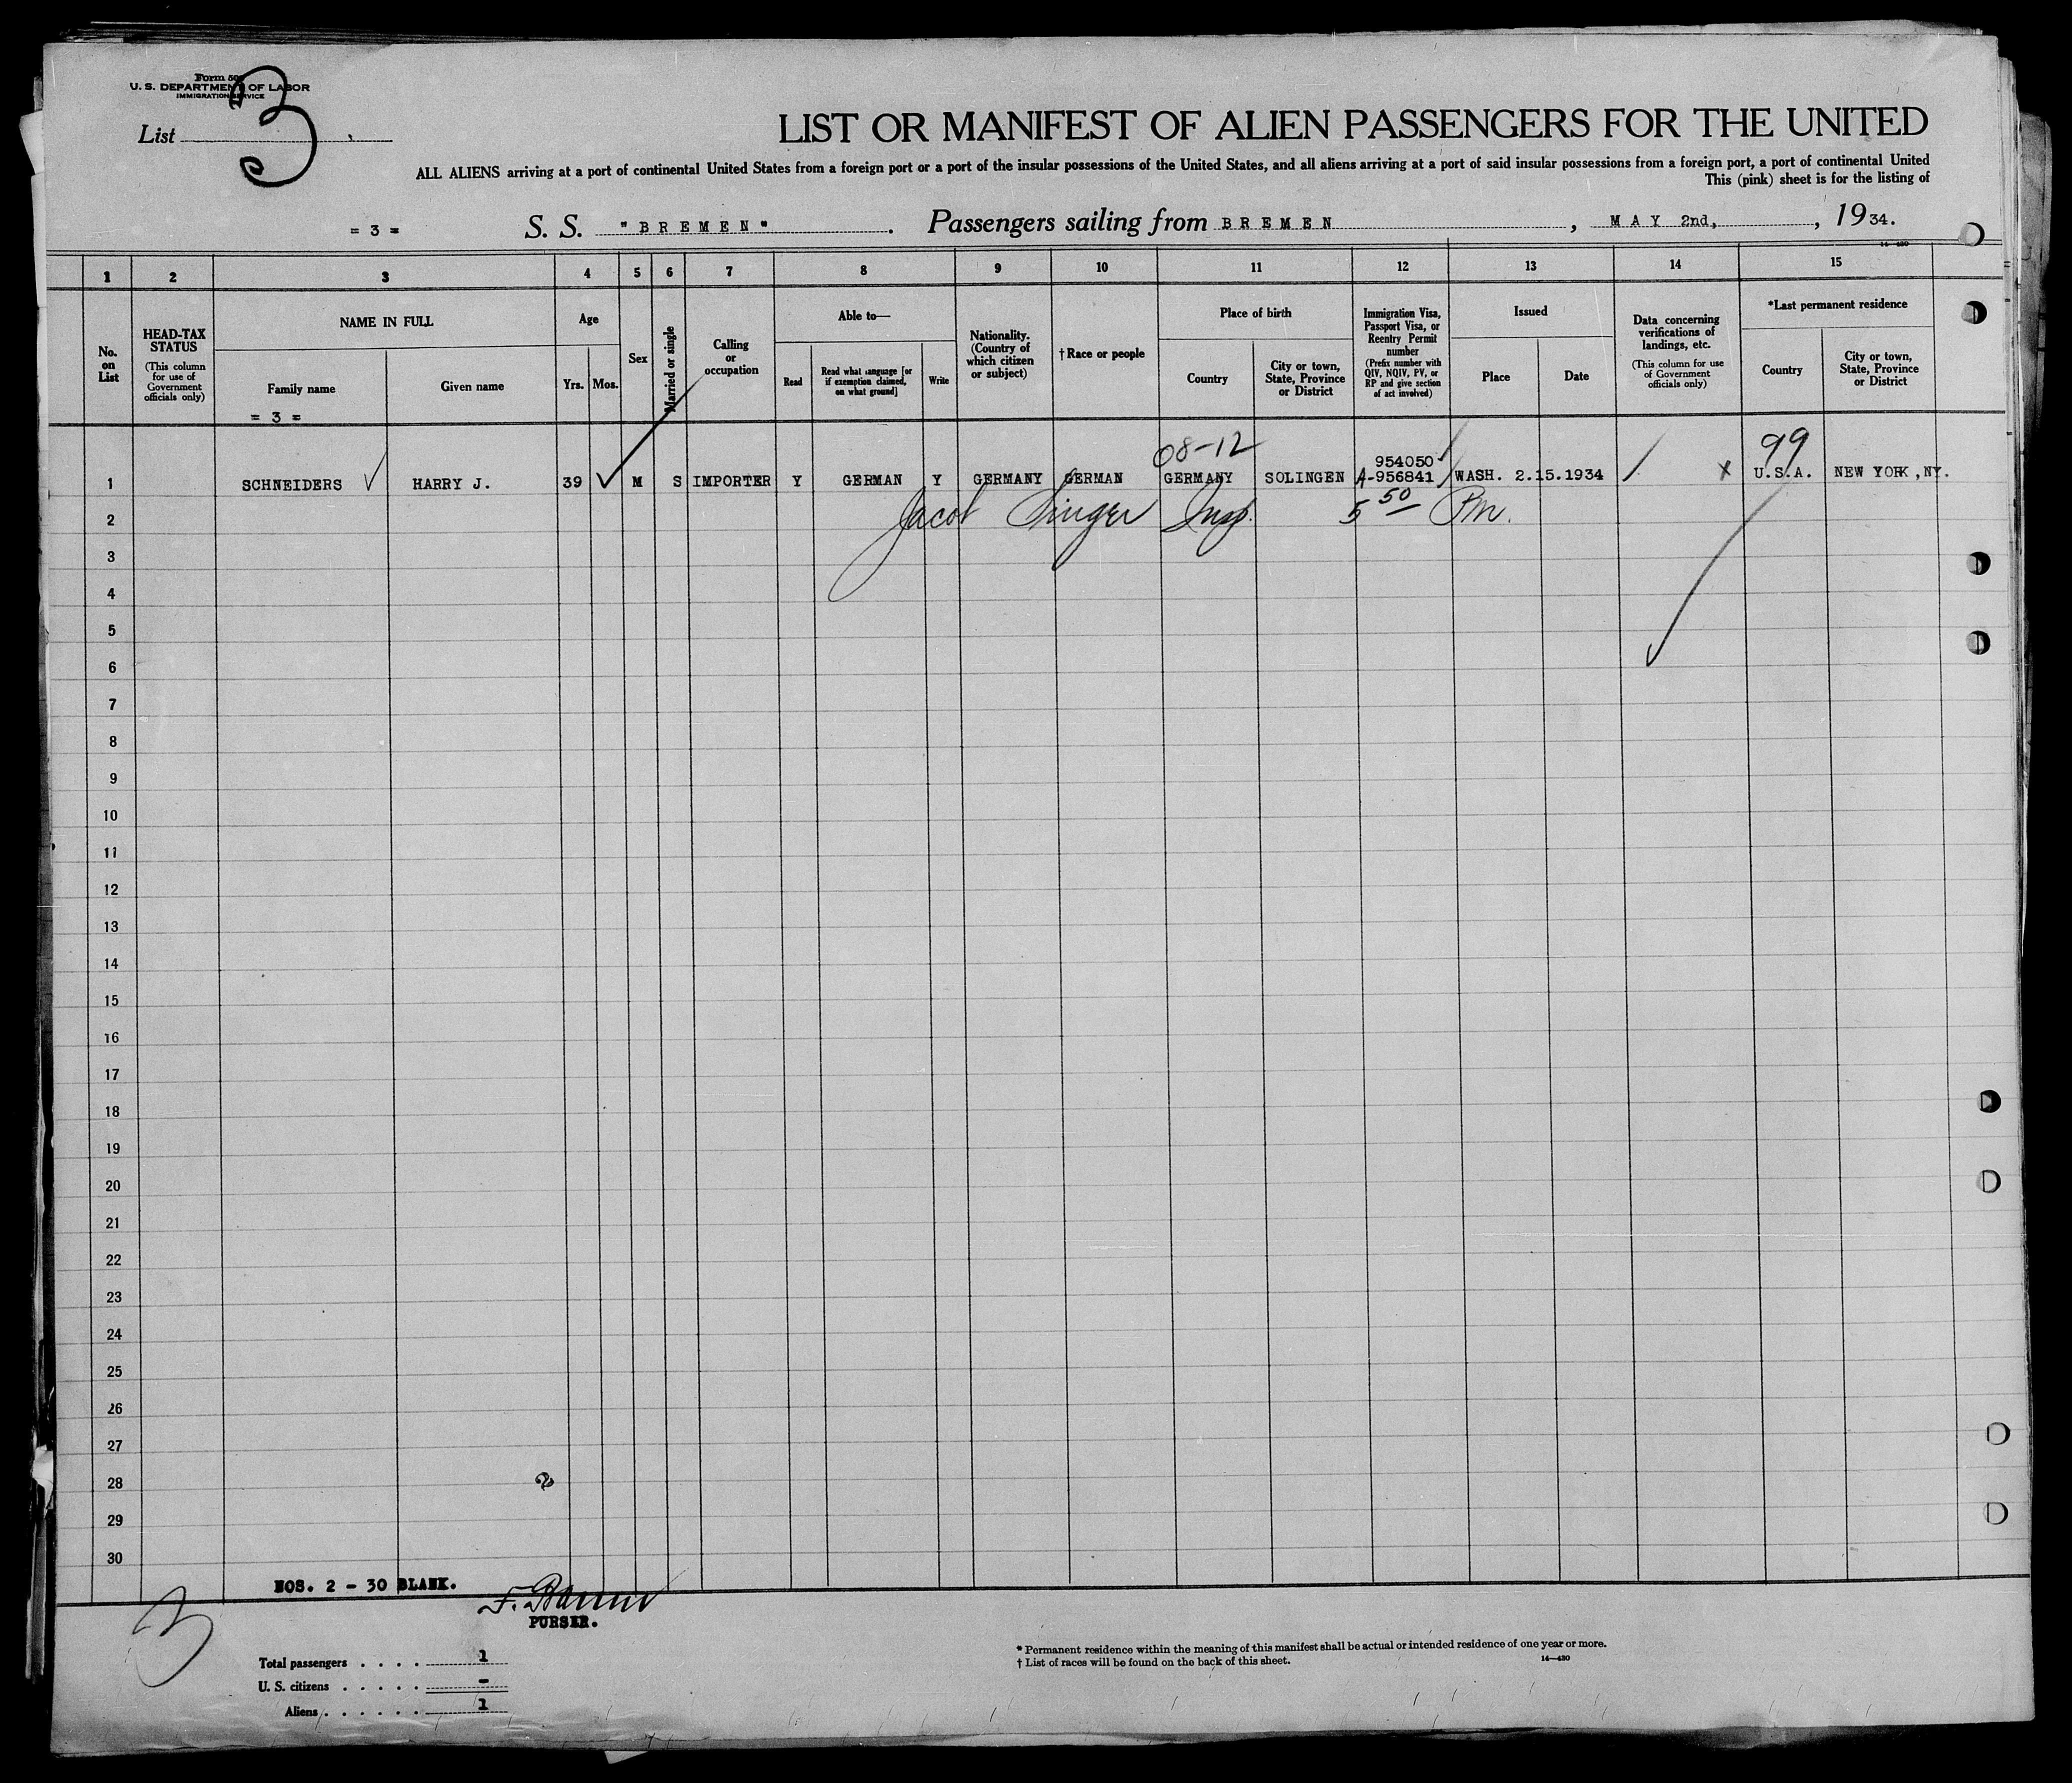 Form 50
U. S. DEPARTMENT OF LABOR
IMMIGRATION SERVICE
List 3
LIST OR MANIFEST OF ALIEN PASSENGERS FOR THE UNITED
ALL ALIENS arriving at a port of continental United States from a foreign port or a port of the insular possessions of the United States, and all aliens arriving at a port of said insular possessions from a foreign port, a port of continental United
This (pink) sheet is for the listing of
= 3 = S. S. "BREMEN". Passengers sailing from BREMEN, MAY 2nd, 1934.
14-430
1 2 3 4 5 6 7 8 9 10 11 12 13 14 15
No. on List
HEAD-TAX STATUS
(This column for use of Government officials only)
NAME IN FULL
Family name
Given name
= 3 =
Age
Yrs. Mos.
Sex
Married or single
Calling or occupation
Able to—
Read
Read what language [or if exemption claimed, on what ground]
Write
Nationality. (Country of which citizen or subject)
† Race or people
Place of birth
Country
City or town, State, Province or District
Immigration Visa, Passport Visa, or Reentry Permit number
(Prefix number with QIV, NQIV, PV, or RP and give section of act involved)
Issued
Place
Date
Data concerning verifications of landings, etc.
(This column for use of Government officials only)
*Last permanent residence
Country
City or town, State, Province or District
08-12 954050 99
1 SCHNEIDERS HARRY J. 39 M S IMPORTER Y GERMAN Y GERMANY GERMAN GERMANY SOLINGEN A-956841 WASH. 2.15.1934 x U.S.A. NEW YORK, NY.
2 Jacob Singer Insp. 5 50 Pm.
3
4
5
6
7
8
9
10
11
12
13
14
15
16
17
18
19
20
21
22
23
24
25
26
27
28
29
30
NOS. 2 - 30 BLANK.
PURSER.
3
Total passengers . . . . 1
U. S. citizens . . . . . -
Aliens . . . . . . 1
* Permanent residence within the meaning of this manifest shall be actual or intended residence of one year or more.
† List of races will be found on the back of this sheet.
14—430